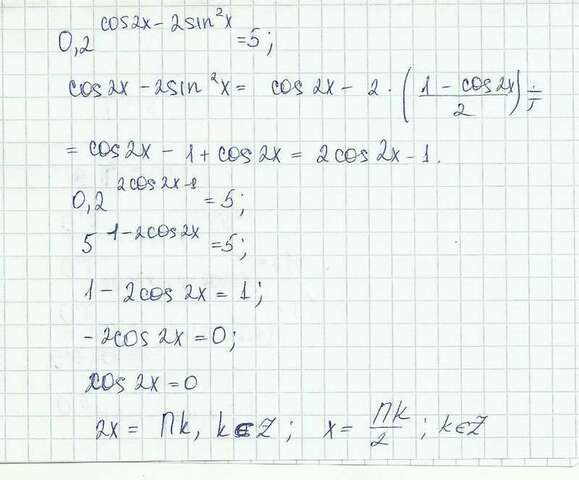 0,2^(cos2x - 2sin²x) = 5;
cos2x - 2sin²x = cos 2x - 2 · ((1 - cos 2x)/2) =
= cos2x - 1 + cos2x = 2cos 2x - 1.
0,2^(2cos2x-1) = 5;
5^(1-2cos2x) = 5;
1 - 2cos 2x = 1;
-2cos 2x = 0;
cos 2x = 0
2x = Пk, k∈Z; x = Пk/2; k∈Z